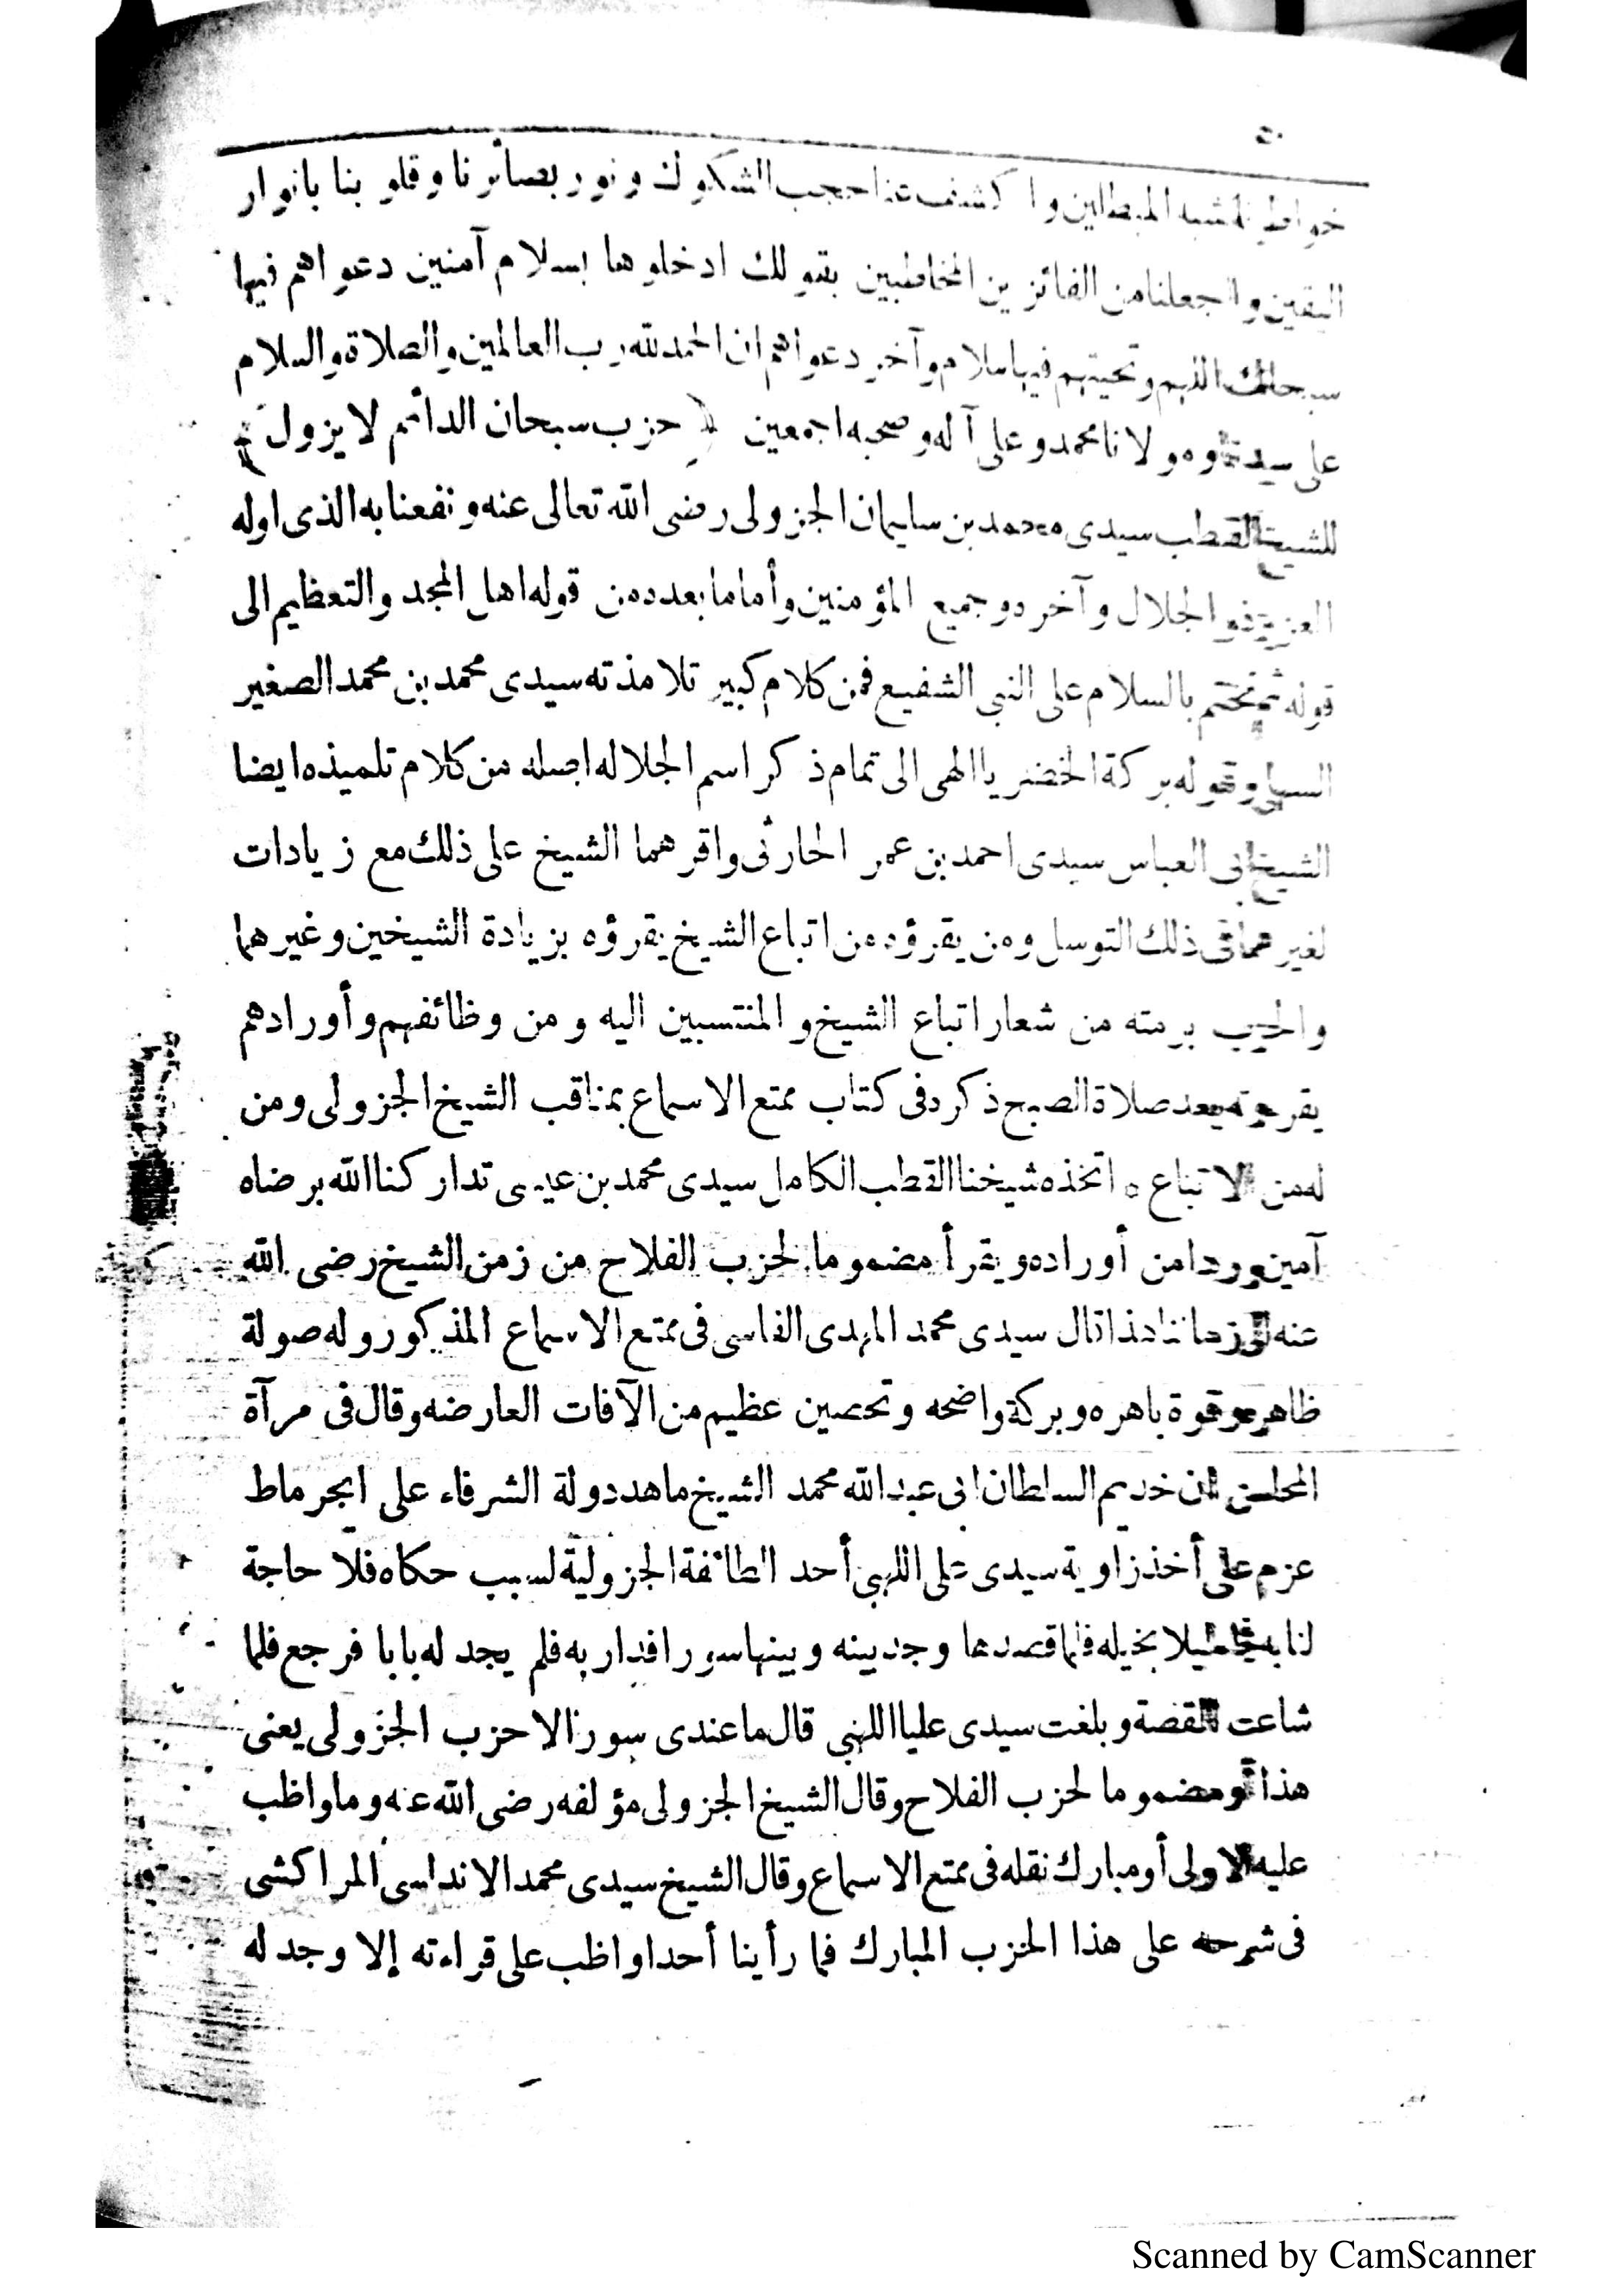 خواطر نا شبه المبطلين واكشف عنا حجب الشكوك ونور بصائرنا وقلوبنا بانوار
اليقين واجعلنا من الفائزين المخاطبين بقولك ادخلوها بسلام آمنين دعواهم فيها
سبحانك اللهم وتحيتهم فيها سلام وآخر دعواهم ان الحمد لله رب العالمين والصلاة والسلام
على سيدنا ومولانا محمد وعلى آله وصحبه اجمعين ﴿ حزب سبحان الدائم لا يزول ﴾
للشيخ القطب سيدى محمد بن سليمان الجزولى رضى الله تعالى عنه ونفعنا به الذى اوله
العزيز ذو الجلال وآخره وجميع المؤمنين وأما ما بعده من قوله اهل المجد والتعظيم الى
قوله ثم نختم بالسلام على النبى الشفيع فمن كلام كبير تلامذته سيدى محمد بن محمد الصغير
السهلى وقوله بركة الخضر يا الهى الى تمام ذكر اسم الجلاله اصله من كلام تلميذه ايضا
الشيخ ابى العباس سيدى احمد بن عمر الحارثى واقرهما الشيخ على ذلك مع زيادات
لغيرهما فى ذلك التوسل ومن يقرؤه من اتباع الشيخ يقرؤه بزيادة الشيخين وغيرهما
والحزب برمته من شعار اتباع الشيخ والمنتسبين اليه ومن وظائفهم وأورادهم
يقرءونه بعد صلاة الصبح ذكره فى كتاب ممتع الاسماع بمناقب الشيخ الجزولى ومن
له من الاتباع ه اتخذه شيخنا القطب الكامل سيدى محمد بن عيسى تداركنا الله برضاه
آمين وردا من أوراده ويقرأ مضموما لحزب الفلاح من زمن الشيخ رضى الله
عنه الى زماننا هذا قال سيدى محمد المهدى الفاسى فى ممتع الاسماع المذكور وله صولة
ظاهره وقوة باهره وبركة واضحه وتحصين عظيم من الآفات العارضه وقال فى مرآة
المحاسن ان خديم السلطان ابى عبد الله محمد الشيخ ماهد دولة الشرفاء على ابجرماط
عزم على أخذ زاوية سيدى على اللهبى أحد الطائفة الجزولية لسبب حكاه فلا حاجة
لنا به ليلا بخيله فلما قصدها وجد بينه وبينها سورا فدار به فلم يجد له بابا فرجع فلما
شاعت القصة وبلغت سيدى عليا اللهبى قال ما عندى سور الا حزب الجزولى يعنى
هذا مضموما لحزب الفلاح وقال الشيخ الجزولى مؤلفه رضى الله عنه وما واظب
عليه الا ولى أو مبارك نقله فى ممتع الاسماع وقال الشيخ سيدى محمد الاندلسى المراكشى
فى شرحه على هذا الحزب المبارك فما رأينا أحدا واظب على قراءته إلا وجد له
Scanned by CamScanner